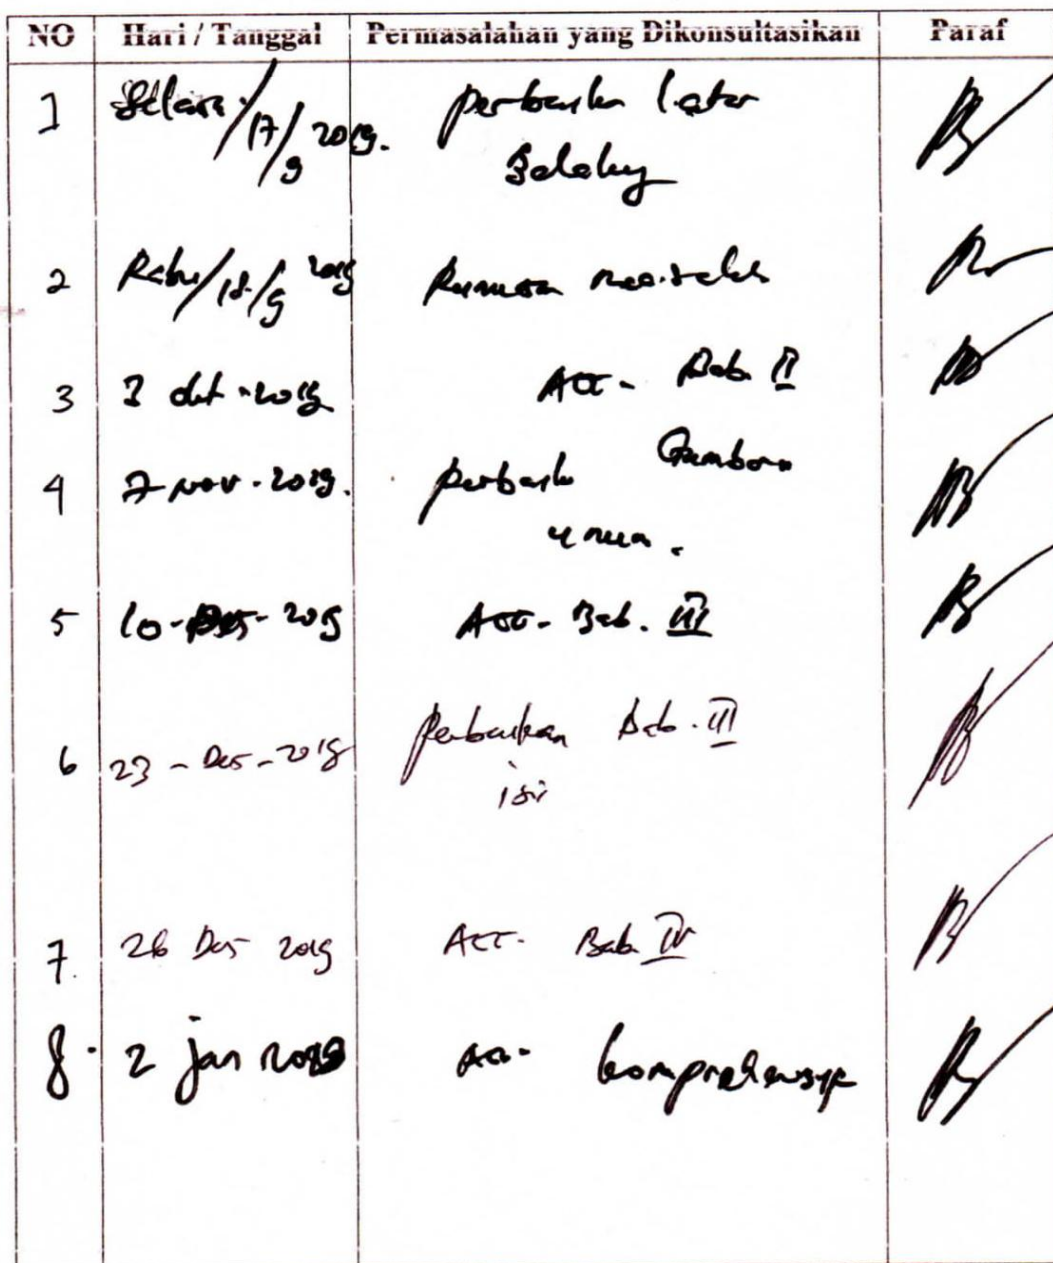 NO Hari / Tanggal Permasalahan yang Dikonsultasikan Paraf
1 Selasa / 17/9 2019. perbaiki latar
Belakang
2 Rabu / 18/9 2019 Rumusan masalah
3 3 okt - 2019 ACC - Bab II
4 7 nov - 2019. perbaiki Gambaran
umum.
5 10 - Des - 2019 ACC - Bab. III
6 23 - Des - 2019 Perbaikan Bab. III
isi
7. 26 Des 2019 ACC - Bab. IV
8. 2 jan ACC - komprehensif